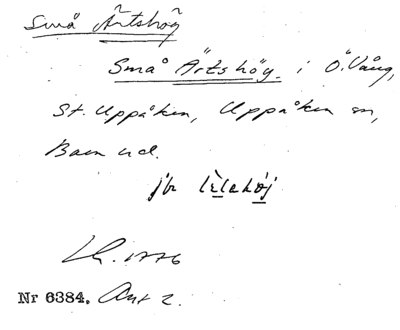 Små Ärtshög
Små Ärtshöy i Ö. Vång,
St. Uppåkra, Uppåkra sn,
Bara hd.
jfr
1776
Nr 6384. Akt 2.